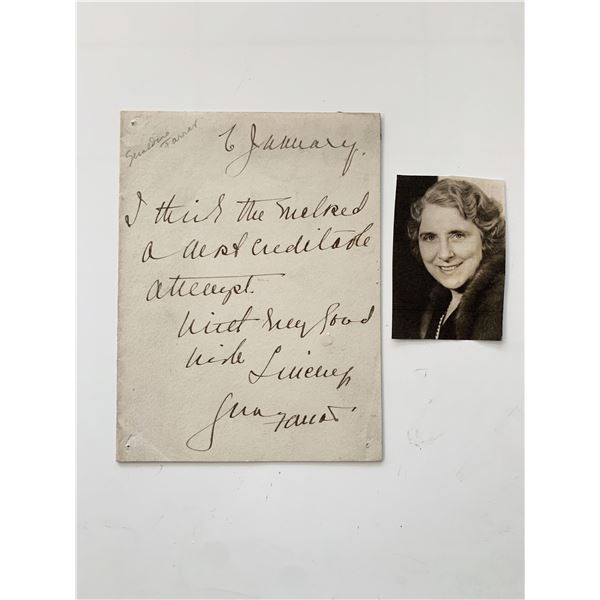 Geraldine
Farrar
6 January.
I think the enclosed
a most creditable
attempt.
With every good
wish Sincerely
Farrar